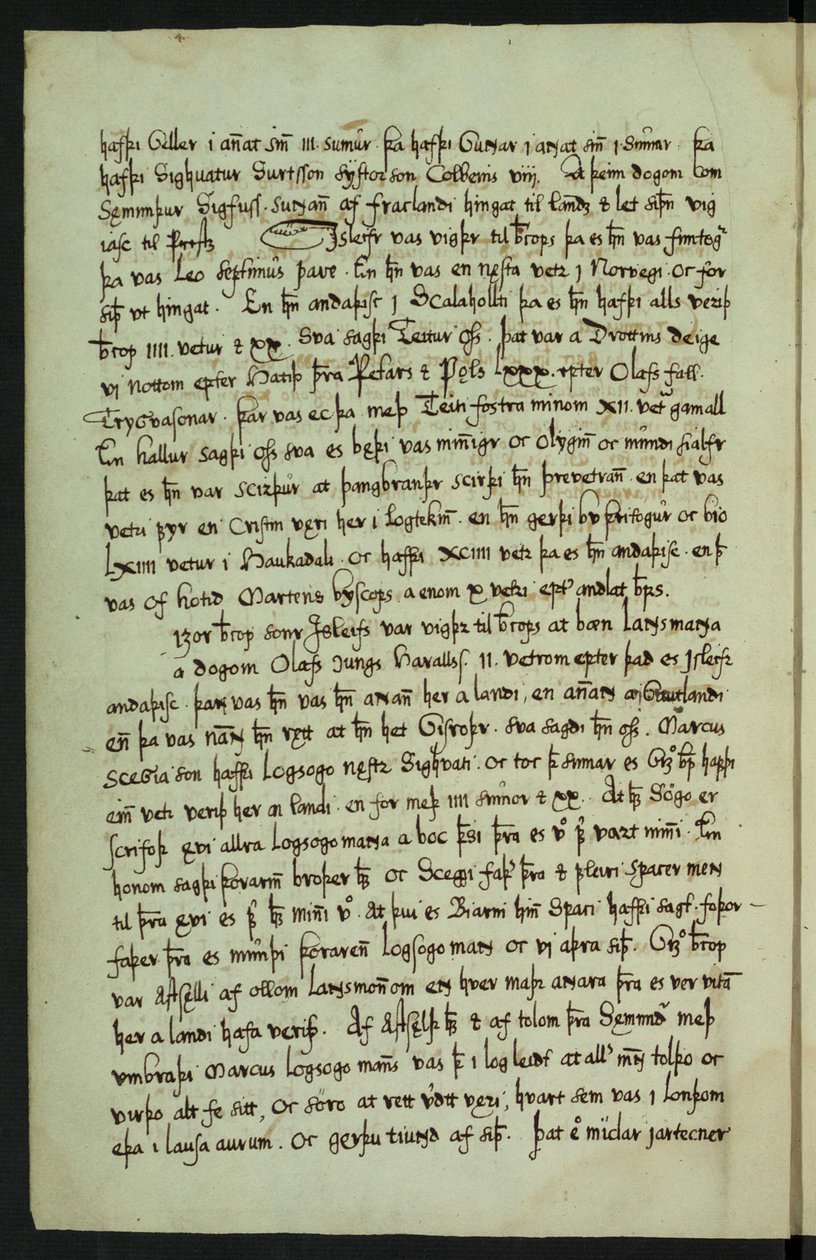 hafþi Geller i an̄at sīn III. sumür. þa hafþi Guɴar i aɴat sīn i. sūmar. þa
hafþi Sighvatur Surtsson systorson Colbeins viii. A þeim dogom com
Sęmmþur Sigfuss. suɴan̄ af fraclandi hingat til landz & let siþn̄ vig
iasc til Prestz Jsleifr vas vigþr til b̄cops þa es hn̄ vas fimtögr
þa vas Leo septimūs pave. En hn̄ vas en nęsta vetr i Norvegi. oc fór
siþ vt hingat. En hn̄ andaþisc i Scalahollti þa es hn̄ hafþi alls veriþ
b̄cop IIII. vetur & XX. Sva sagþi Teitur oss. þat var a Drottins deige
vi nottom epter Hatiþ þr̄a Petars & Pęls LXXX. epter Olafs fall.
Trygvasonar. þar vas ec þa meþ Teiti fostra minom XII. vet̃ gamall
En hallur sagþi oss sva es bęþi vas min̄igr oc olygin̄ oc mūndi sialfr
þat es hn̄ var scizþur at þangbranþr scirþi hn̄ þrevetran̄. en þat vas
vetri fyr en Cristni vęri her i logtekin̄. en hn̄ gerþi bv þritogür oc bio
LXIIII vetur i Haukadali. oc hafþi XCIIII vetr þa es hn̄ andaþisc. en þ̄
vas of hotid Martens byscops a enom x vetri ept̓ andlat b̄ps.
izor b̄cop sonr Jsleifs var vigþr til b̄cops at bœn Laɴsmaɴa
á dogom Olafs Kungs Harallss. II. vetrom epter þad es Jsleifr
andaþisc. þaɴ vas hn̄ vas hn̄ aɴan̄ her a landi, en an̄aɴ a Gautlandi
en̄ þa vas naf̄ɴ hn̄ rętt at hn̄ het Gisroþr. sva sagdi hn̄ oss. Marcus
Scegia son hafþi Logsogo nęstr Sighvati. oc toc þ̄ sumar es Gizo᷎ b̄p hafþi
ein̄ vetr veriþ her a landi. en for meþ IIII sumor & XX. At hs̄ Sögo er
scrifoþ ęvi allra Logsogomaɴa a boc þs̄i þr̄a es v̊ f̓ vart min̄i. En
honom sagþi þorarin̄ broþer hs̄ oc Sceggi faþ̓ þr̄a & fleiri spacer meɴ
til þr̄a ęvi es f̓ hs̄ min̄i v̊. at þui es Biarni hin̄ Spaci hafþi sagt. foþor
faþer þr̄a es mūnþi þoraren̄ Logsogo maɴ oc vi aþra siþ̄. Gizo᷎ b̄cop
var Astsęlli af ollom Laɴsmon̄om en hver maþr aɴara þr̄a es ver vitā
her a landi hafa veriþ. Af Astsęlþ hs̄ & af tolom þr̄a Sęmmd̃ meþ
vmbraþi Marcus Logsogo man̄s vas þ̄ i log leidt at all̓ m̄ɴ tolþo oc
virþo alt fe sitt, oc sóro at rett v̓dtt vęri, hvart sem vas i Lonþom
eþa i lausa aurum. oc gerþu tiuɴd af siþ̄. þat e̊ miclar jartecner